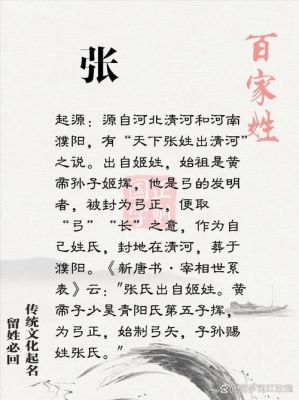 张
百家姓
起源：源自河北清河和河南
濮阳，有“天下张姓出清河”
之说。出自姬姓，始祖是黄
帝孙子姬挥，他是弓的发明
者，被封为弓正，便取
“弓”“长”之意，作为自
己姓氏，封地在清河，葬于
濮阳。《新唐书·宰相世系
表》云："张氏出自姬姓。黄
帝子少昊青阳氏第五子挥，
为弓正，始制弓矢，子孙赐
姓张氏。"
传统文化起名
留姓必回